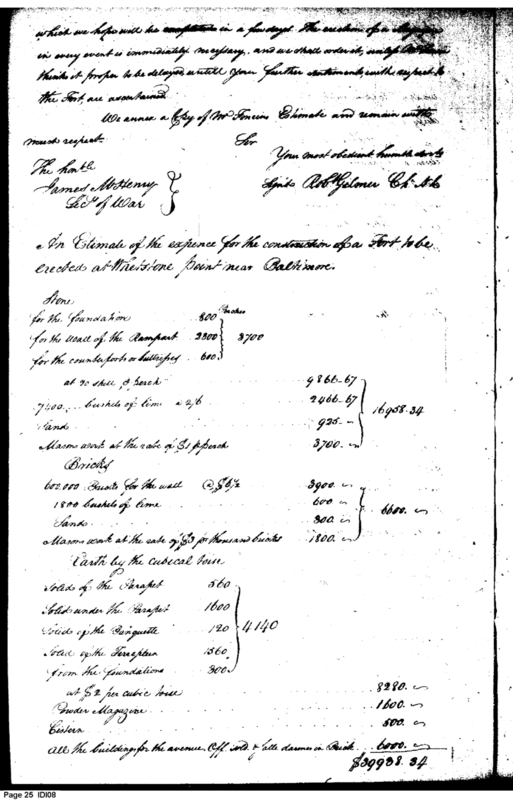 which we hope will be in a few days. The erection of a Magazine
in every event is immediately necessary, and we shall order it, unless
think it proper to be delayed untill your further sentiments with respect to
the Fort, are ascertained.
We annex a Copy of Mr Estimate and remain with
much respect. Sir
Your most obedient humble
The honble
James McHenry
Secy of War
Signd Robt Gilmor Ch.
An Estimate of the expence for the construction of a Fort to be
erected at Whetstone point near Baltimore.
Stone
Perches
for the foundation 800
for the wall of the Rampart 2300 3700
for the counterforts or buttresses 600
at 20 shill ⅌ perch 9866-67
7400 bushels of lime a 2/6 2466-67
16958.34
Sand 925.
Masons work at the rate of $1 ⅌ perch 3700.
Bricks
602.000 Bricks for the wall @ $6½ 3900.
1800 bushels of lime 600.
6600.
Sands 300.
Masons work at the rate of $3 pr thousand bricks 1800.
Earth by the cubical toise
Solid of the Parapet 560
Solid under the Parapet 1600
Solid of the Banquette 120
4140
Solid of the Terreplein 1560
from the foundations 300
at $2 per cubic toise 8280.
Powder Magazine 1600.
Cistern 500.
All the buildings for the avenue, Off. sold. & in Brick 6000.
$39938.34
Page 25 IDI08